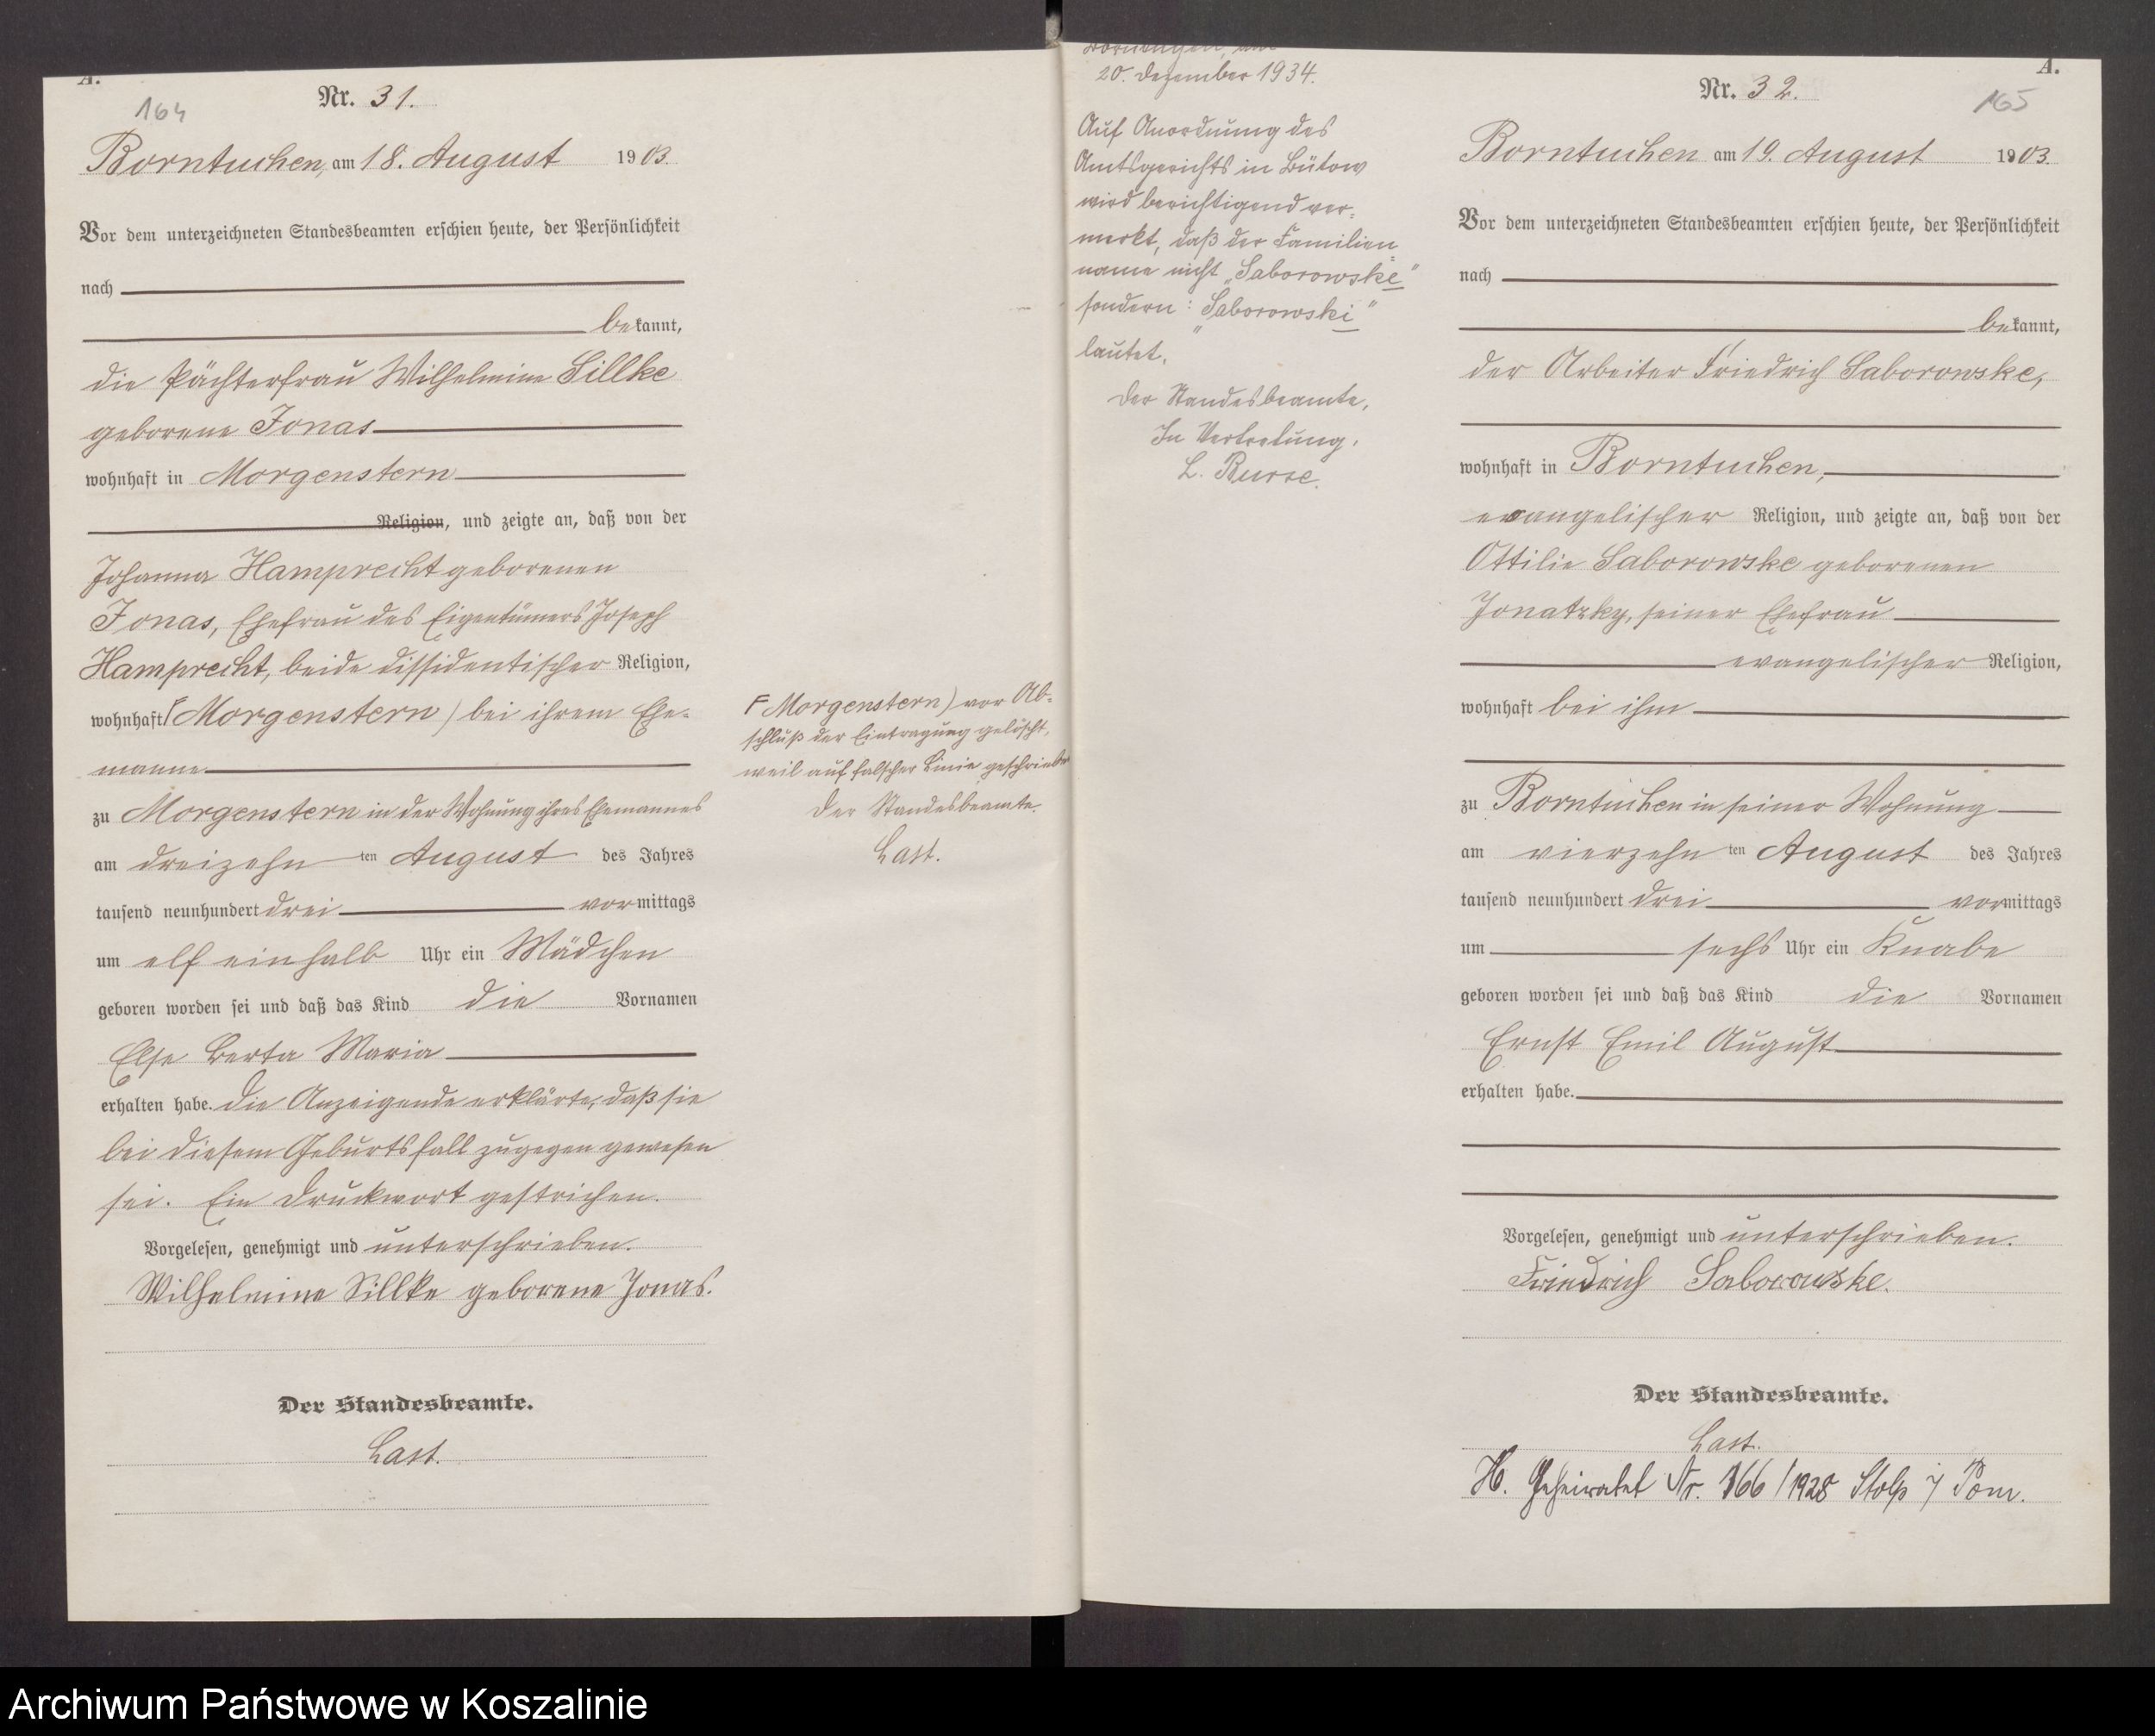 A.
164
Nr. 31.
Borntuchen, am 18. August 1903.
Vor dem unterzeichneten Standesbeamten erschien heute, der Persönlichkeit
nach
bekannt,
die Pächterfrau Wilhelmine Sillke
geborene Jonas
wohnhaft in Morgenstern
Religion, und zeigte an, daß von der
Johanna Hamprecht geborenen
Jonas, Ehefrau des Eigentümers Joseph
Hamprecht, beide dissidentischer Religion,
wohnhaft (Morgenstern) bei ihrem Ehe-
manne
zu Morgenstern in der Wohnung ihres Ehemannes
am dreizehn ten August des Jahres
tausend neunhundert drei vormittags
um elf einhalb Uhr ein Mädchen
geboren worden sei und daß das Kind die Vornamen
Else Berta Maria
erhalten habe. Die Anzeigende erklärte, daß sie
bei diesem Geburtsfall zugegen gewesen
sei. Ein Druckwort gestrichen.
Vorgelesen, genehmigt und unterschrieben.
Wilhelmine Sillke geborene Jonas.
Der Standesbeamte.
Last.
Morgenstern) vor Ab-
schluß der Eintragung gelöscht,
weil auf falscher Linie geschrieben
Der Standesbeamte.
Last.
20. Dezember 1934.
Auf Anordnung des
Amtsgerichts in Bütow
wird berichtigend ver-
merkt, daß der Familien-
name nicht „Saborowske"
sondern: „Saborowski"
lautet.
Der Standesbeamte,
In Vertretung.
L. Burse.
A.
Nr. 32.
165
Borntuchen am 19. August 1903.
Vor dem unterzeichneten Standesbeamten erschien heute, der Persönlichkeit
nach
bekannt,
der Arbeiter Friedrich Saborowske,
wohnhaft in Borntuchen,
evangelischer Religion, und zeigte an, daß von der
Ottilie Saborowske geborenen
Jonatzky, seiner Ehefrau
evangelischer Religion,
wohnhaft bei ihm
zu Borntuchen in seiner Wohnung
am vierzehn ten August des Jahres
tausend neunhundert drei vormittags
um sechs Uhr ein Knabe
geboren worden sei und daß das Kind die Vornamen
Ernst Emil August
erhalten habe.
Vorgelesen, genehmigt und unterschrieben.
Friedrich Saborowske.
Der Standesbeamte.
Last.
H. Geheiratet Nr. 166/1928 Stolp i/ Pom.
Archiwum Państwowe w Koszalinie